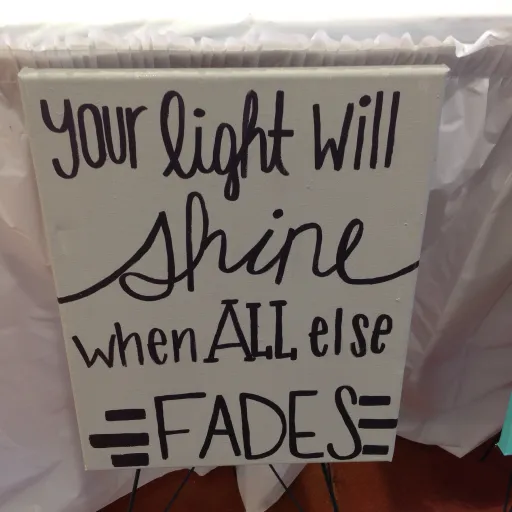 your light will
shine
when ALL else
FADES